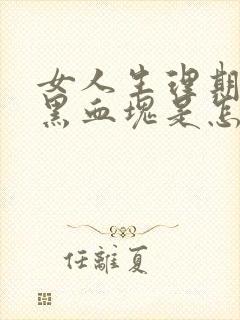 女人生理期
黑血块是怎
任離夏